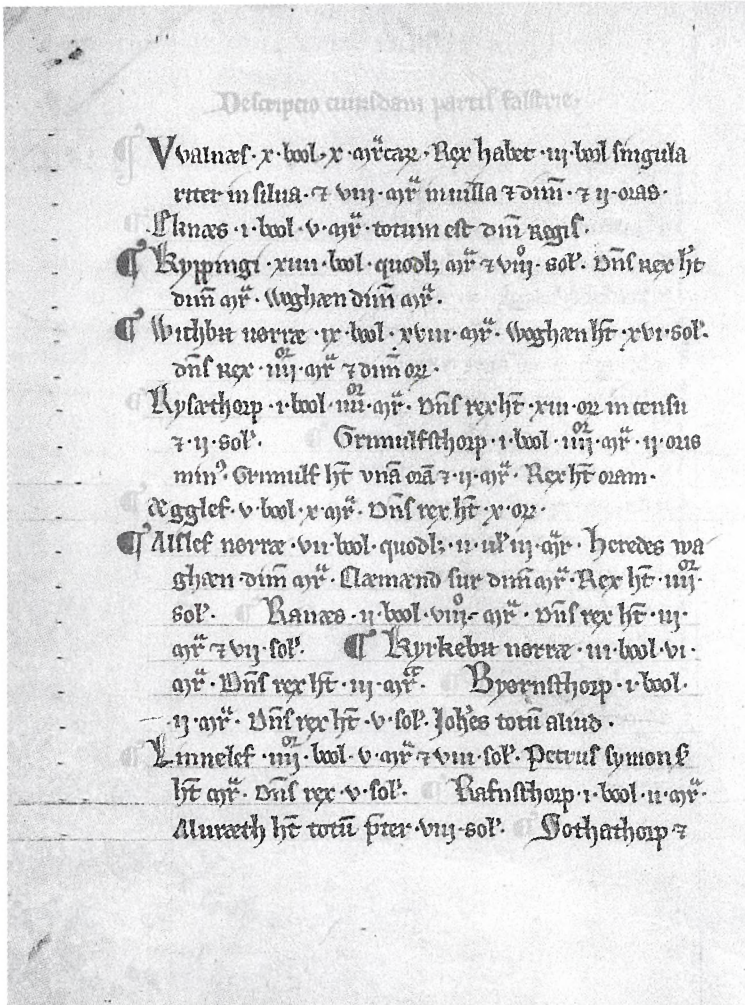 Descriptio cuiusdam partis falstrie·
Vvalnæs· x· bool· x· mr̃ carꝝ· Rex habet· iij· bool singula
riter in silua· ⁊ viij· mr̃ in uilla ⁊ dim̃· ⁊ ij· oras·
Eknæs· i· bool· v· mr̃· totum est dn̄i Regis·
¶ Kyppingi· xiiii· bool· quodlꝫ mr̃ ⁊ viijͦ· sol'· Dn̄s Rex hꝫt
dim̃ mr̃· Woghæn dim̃ mr̃·
¶ Withbu nørræ· ix· bool· xviii· mr̃· Woghæn hꝫt· xvi· sol'·
dn̄s Rex· iiijᵒʳ· mr̃ ⁊ dim̃ orꝝ·
Rysæthorp· i· bool· iiijᵒʳ· mr̃· Dn̄s rex hꝫt· xiii· orꝝ in censu
⁊· ij· sol'· Grimulfsthorp· i· bool· iiijᵒʳ· mr̃· ij· oris
min⁹· Grimulf hꝫt vnā orā ⁊· ij· mr̃· Rex hꝫt oram·
Ægglef· v· bool· x· mr̃· Dn̄s rex hꝫt· x· orꝝ·
¶ Alslef nørræ· vii· bool· quodlꝫ· ii· uł iij· mr̃· heredes wa
ghæn· dim̃ mr̃· Næmænd sur dim̃ mr̃· Rex hꝫt· iiijᵒʳ·
sol'· Ranæs· ij· bool· viijͦ· mr̃· Dn̄s rex hꝫt· iij·
mr̃ ⁊ vij· sol'· ¶ Kyrkebu nørræ· iii· bool· vi·
mr̃· Dn̄s rex hꝫt· iij· mr̃· Byørnsthorp· i· bool·
ij· mr̃· Dn̄s rex hꝫt· v· sol'· Joh̄es totū aliud·
Linnelef· iiijᵒʳ· bool· v· mr̃ ⁊ viii· sol'· Petrus symon
hꝫt mr̃· Dn̄s rex· v· sol'· Rafnsthorp· i· bool· ii· mr̃·
Aluræth hꝫt totū p̄ter· viij· sol'· Sothathorp ⁊